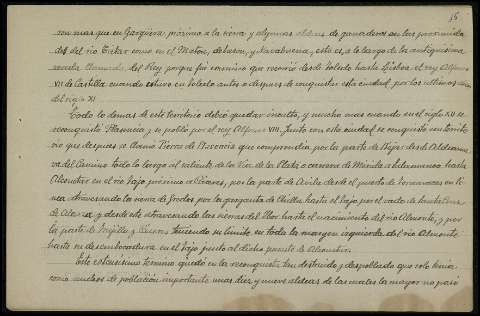 15
con mas que en Garguera, próximo a la sierra y algunas aldeas de ganaderos en las proximida
des del rio Tietar como en el Matón, de Luson, y Navabuena, esto es, a lo largo de la antiquisima
vereda llamada del Rey porque fué camino que recorrió desde Toledo hasta Lisboa el rey Alfonso
VI de Castilla cuando estuvo en Toledo antes o despues de conquistar esta ciudad, por los ultimos años
del siglo XI.
Todo lo demas de este territorio debió quedar inculto, y mucho mas cuando en el siglo XII se
reconquistó Plasencia y se pobló por el rey Alfonso VIII. Junto con esta ciudad se conquistó un territo
rio que despues se llamó Tierra de Plasencia que comprendia, por la parte de Bejar desde Aldeanue
va del Camino todo lo largo al saliente de la Via de la Plata o carrera de Merida a Salamanca hasta
Alconetar en el rio Tajo próximo a Caceres, por la parte de Avila desde el puerto de Tornavacas en li
nea atravesando la sierra de Gredos por la garganta de Chilla hasta el Tajo por el vado de
de Alarza y desde este atravesando las sierras del Ibor hasta el nacimiento del rio Almonte, y por
la parte de Trujillo y Caceres teniendo su limite en toda la margen izquierda del rio Almonte
hasta su desembocadura en el Tajo junto al dicho puente de Alconetar.
Este extensisimo termino quedó en la reconquista tan destruido y despoblado que solo tenia
como nucleos de población importante unas diez y nueve aldeas de las cuales la mayor no pasó